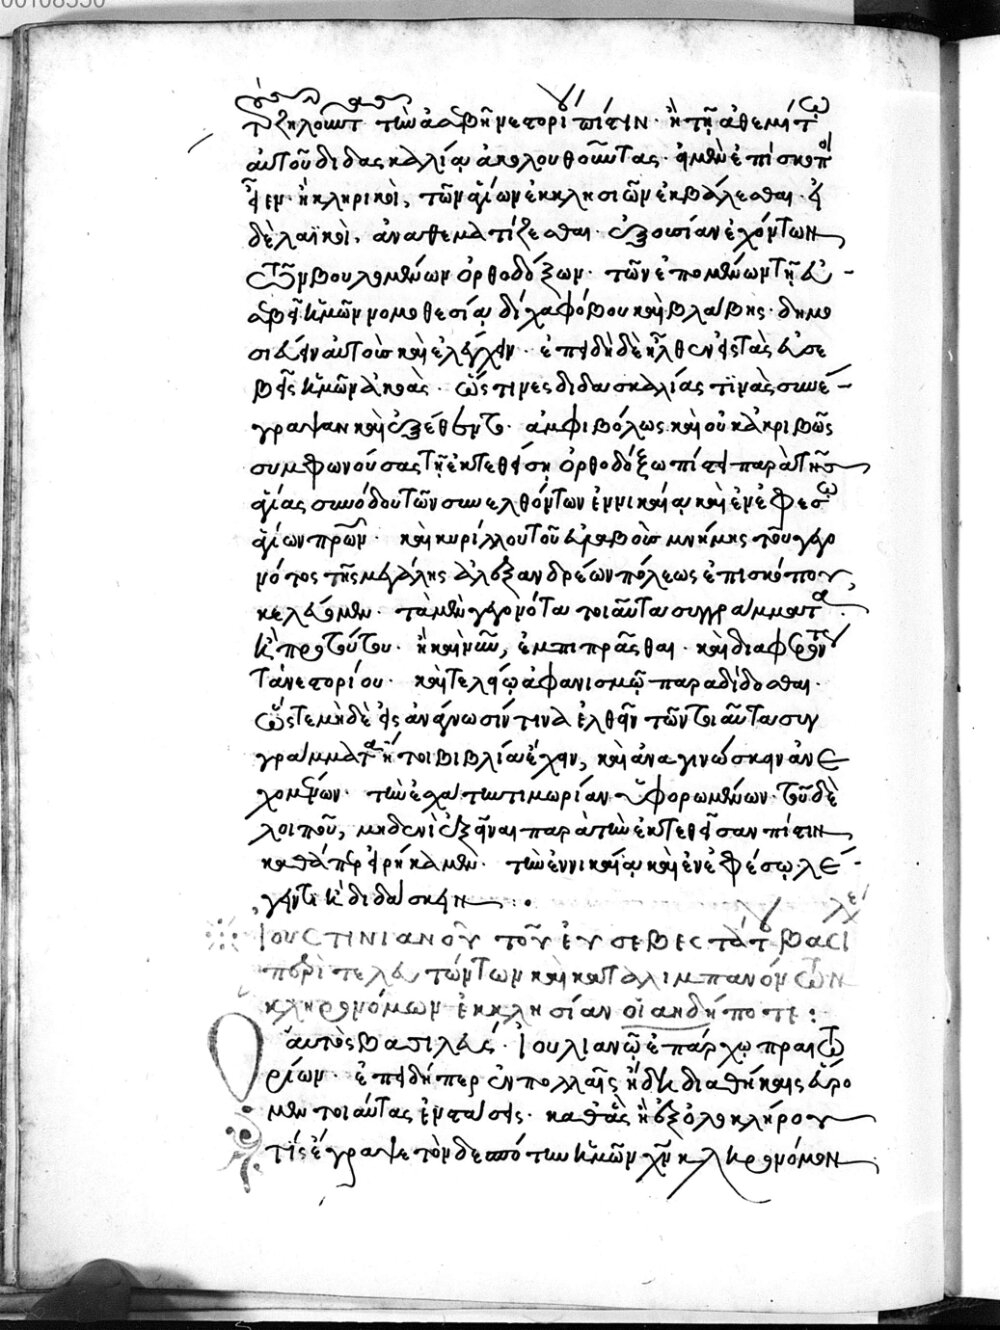 τοὺς ζηλοῦντας τὴν ἀσεβῆ νεστορίου πίστιν· ἢ τῇ ἀθεμίτῳ
αὐτοῦ διδασκαλίᾳ ἀκολουθοῦντας· εἰ μὲν ἐπίσκοποι
εἶεν ἢ κληρικοὶ, τῶν ἁγίων ἐκκλησιῶν ἐκβάλεσθαι· εἰ
δὲ λαϊκοὶ, ἀναθεματίζεσθαι· ἐξουσίαν ἐχόντων
τῶν βουλομένων ὀρθοδόξων· τῶν ἑπομένων τῇ εὐ-
σεβεῖ ἡμῶν νομοθεσίᾳ δίχα φόβου καὶ βλάβης· δημο
σιεύειν αὐτοὺς καὶ ἐλέγχειν· ἐπειδὴ δὲ ἦλθεν εἰς τὰς εὐσε
βεῖς ἡμῶν ἀκοὰς· ὥς τινες διδασκαλίας τινὰς συνέ-
γραψαν καὶ ἐξέθεντο· ἀμφιβόλως καὶ οὐκ ἀκριβῶς
συμφωνούσας τῇ ἐκτεθείσῃ ὀρθοδόξῳ πίστει παρὰ τῆς
ἁγίας συνόδου τῶν συνελθόντων ἐν νικαίᾳ καὶ ἐν ἐφέσῳ
ἁγίων πρων· καὶ κυρίλλου τοῦ εὐσεβοῦς μνήμης τοῦ γενο
μένου τῆς μεγάλης ἀλεξανδρέων πόλεως ἐπισκόπου,
κελεύομεν· τὰ μὲν γενόμενα τοιαῦτα συγγράμματα
καὶ πρὸ τούτου· ἢ καὶ νῦν, ἐμπιπρᾶσθαι· καὶ διαφερόντως
τὰ νεστορίου· καὶ τελείῳ ἀφανισμῷ παραδίδοσθαι·
ὥστε μηδὲ εἰς ἀνάγνωσίν τινα ἐλθεῖν τῶν τοιαῦτα συγ
γράμματα ἤτοι βιβλία ἔχειν, καὶ ἀναγινώσκειν ἀνε
χομένων· τὴν ἐσχάτην τιμωρίαν ὑφορωμένων· τοῦ δὲ
λοιποῦ, μηδενὶ ἐξεῖναι παρὰ τὴν ἐκτεθεῖσαν πίστιν
καθάπερ εἰρήκαμεν· τὴν ἐν νικαίᾳ καὶ ἐν ἐφέσῳ λέ-
γειν τι ἢ διδάσκειν
ἰουστινιανοῦ τοῦ εὐσεβεστάτου βασι
περὶ τελευτώντων καὶ καταλιμπανόντων
κληρονόμων ἐκκλησίαν οἱανδήποτε:
ὁ αὐτὸς βασιλεὺς· ἰουλιανῷ ἐπάρχῳ πραιτω
ρίων· ἐπειδήπερ ἐν πολλαῖς ἤδη διαθήκαις εὕρο
μεν τοιαύτας ἐνστάσεις· καθὰς ἢ ἐξ ὁλοκλήρου
τὶς ἔγραψε τὸν δεσπότην ἡμῶν χν κληρονόμον